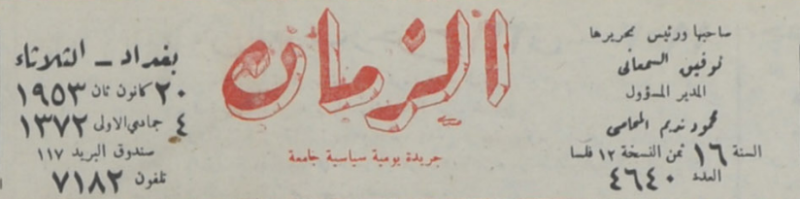 صاحبها ورئيس تحريرها
توفيق السمعاني
المدير المسؤول
محمود نديم المحامي
السنة ١٦ ثمن النسخة ١٢ فلسا
العدد ٤٦٤٠
الزمان
جريدة يومية سياسية جامعة
بغداد – الثلاثاء
٢٠ كانون ثان ١٩٥٣
٤ جمادي الاولى ١٣٧٢
صندوق البريد ١١٧
تلفون ٧١٨٢